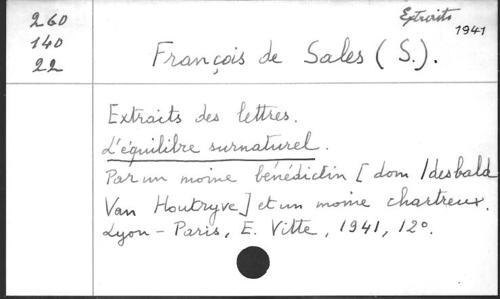 260
140
22
Extraits
1941
François de Sales (S.).
Extraits des lettres.
L'équilibre surnaturel.
Par un moine bénédictin [dom Idesbald
Van Houtryve] et un moine chartreux.
Lyon - Paris, E. Vitte, 1941, 12°.